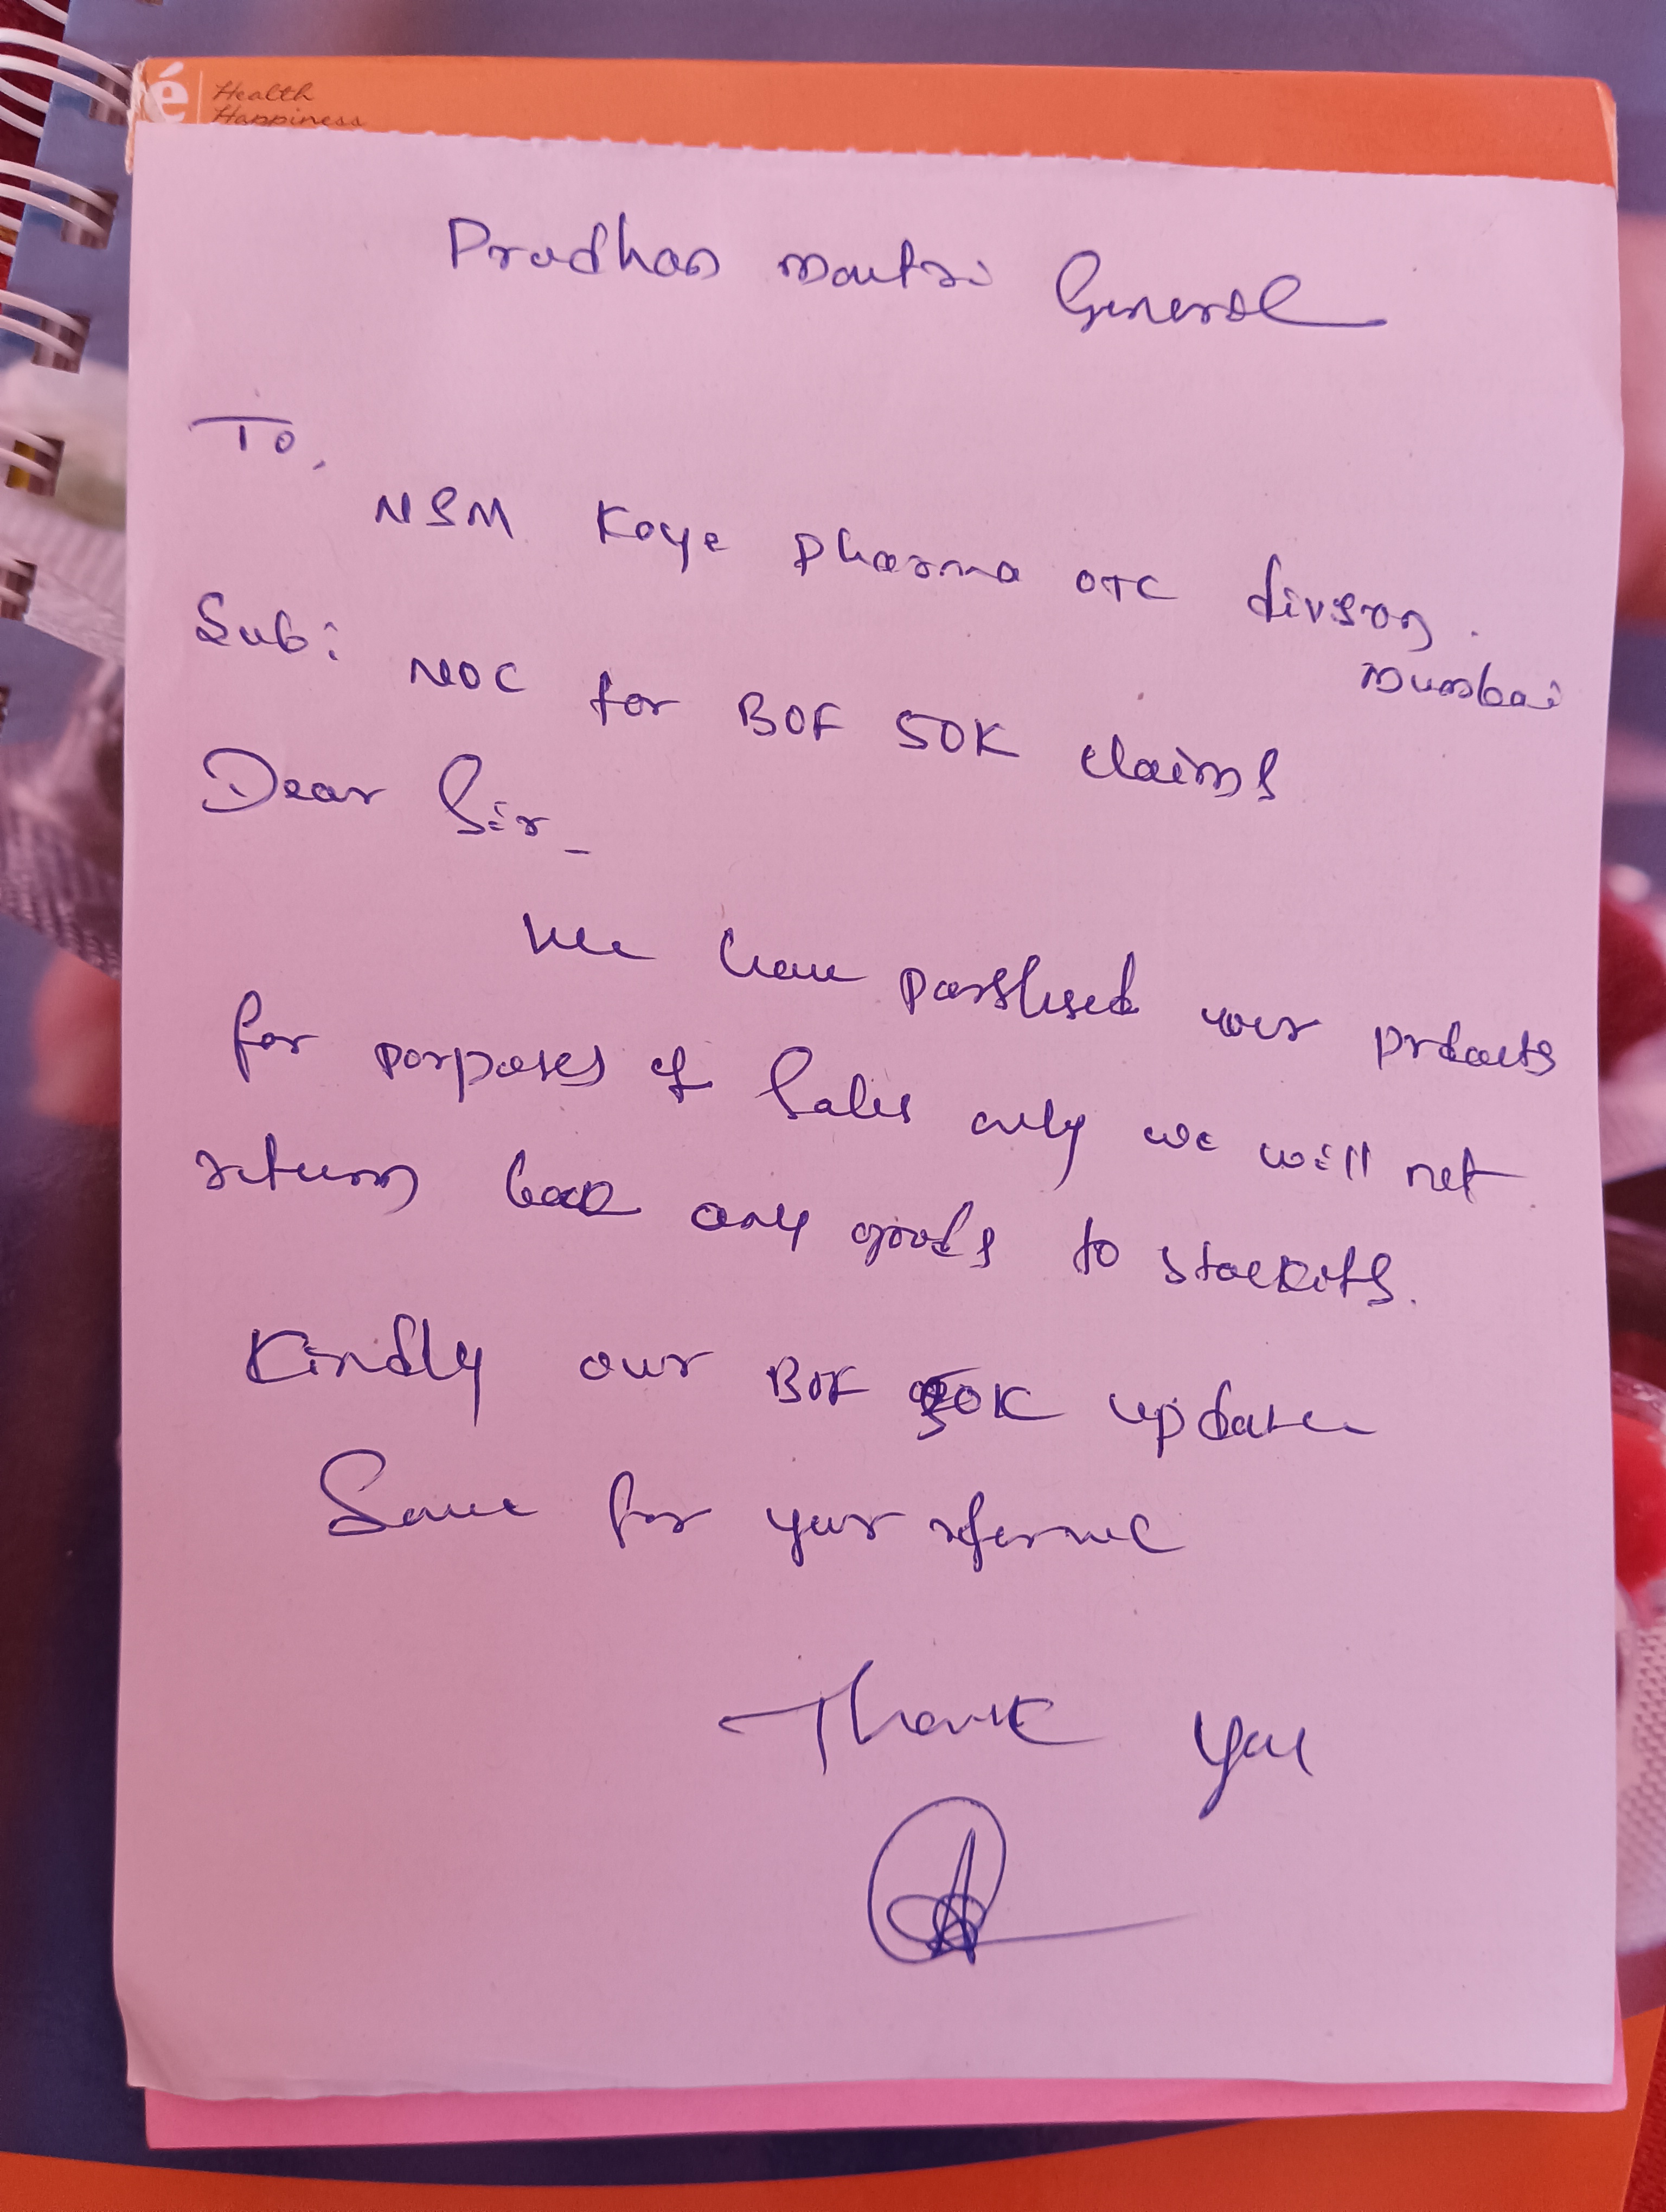 é | Health
Happiness
Pradhan mantri General
To,
NSM Kaye pharma OTC divson.
mumbai
Sub: NOC for BOF 50K claims
Dear Sir_
We have parshesed your prdoucts
for porposes of Sales only we will not
return back any goods to stockits.
Kindly our BOF 50K update
Same for your refernec
Thank you